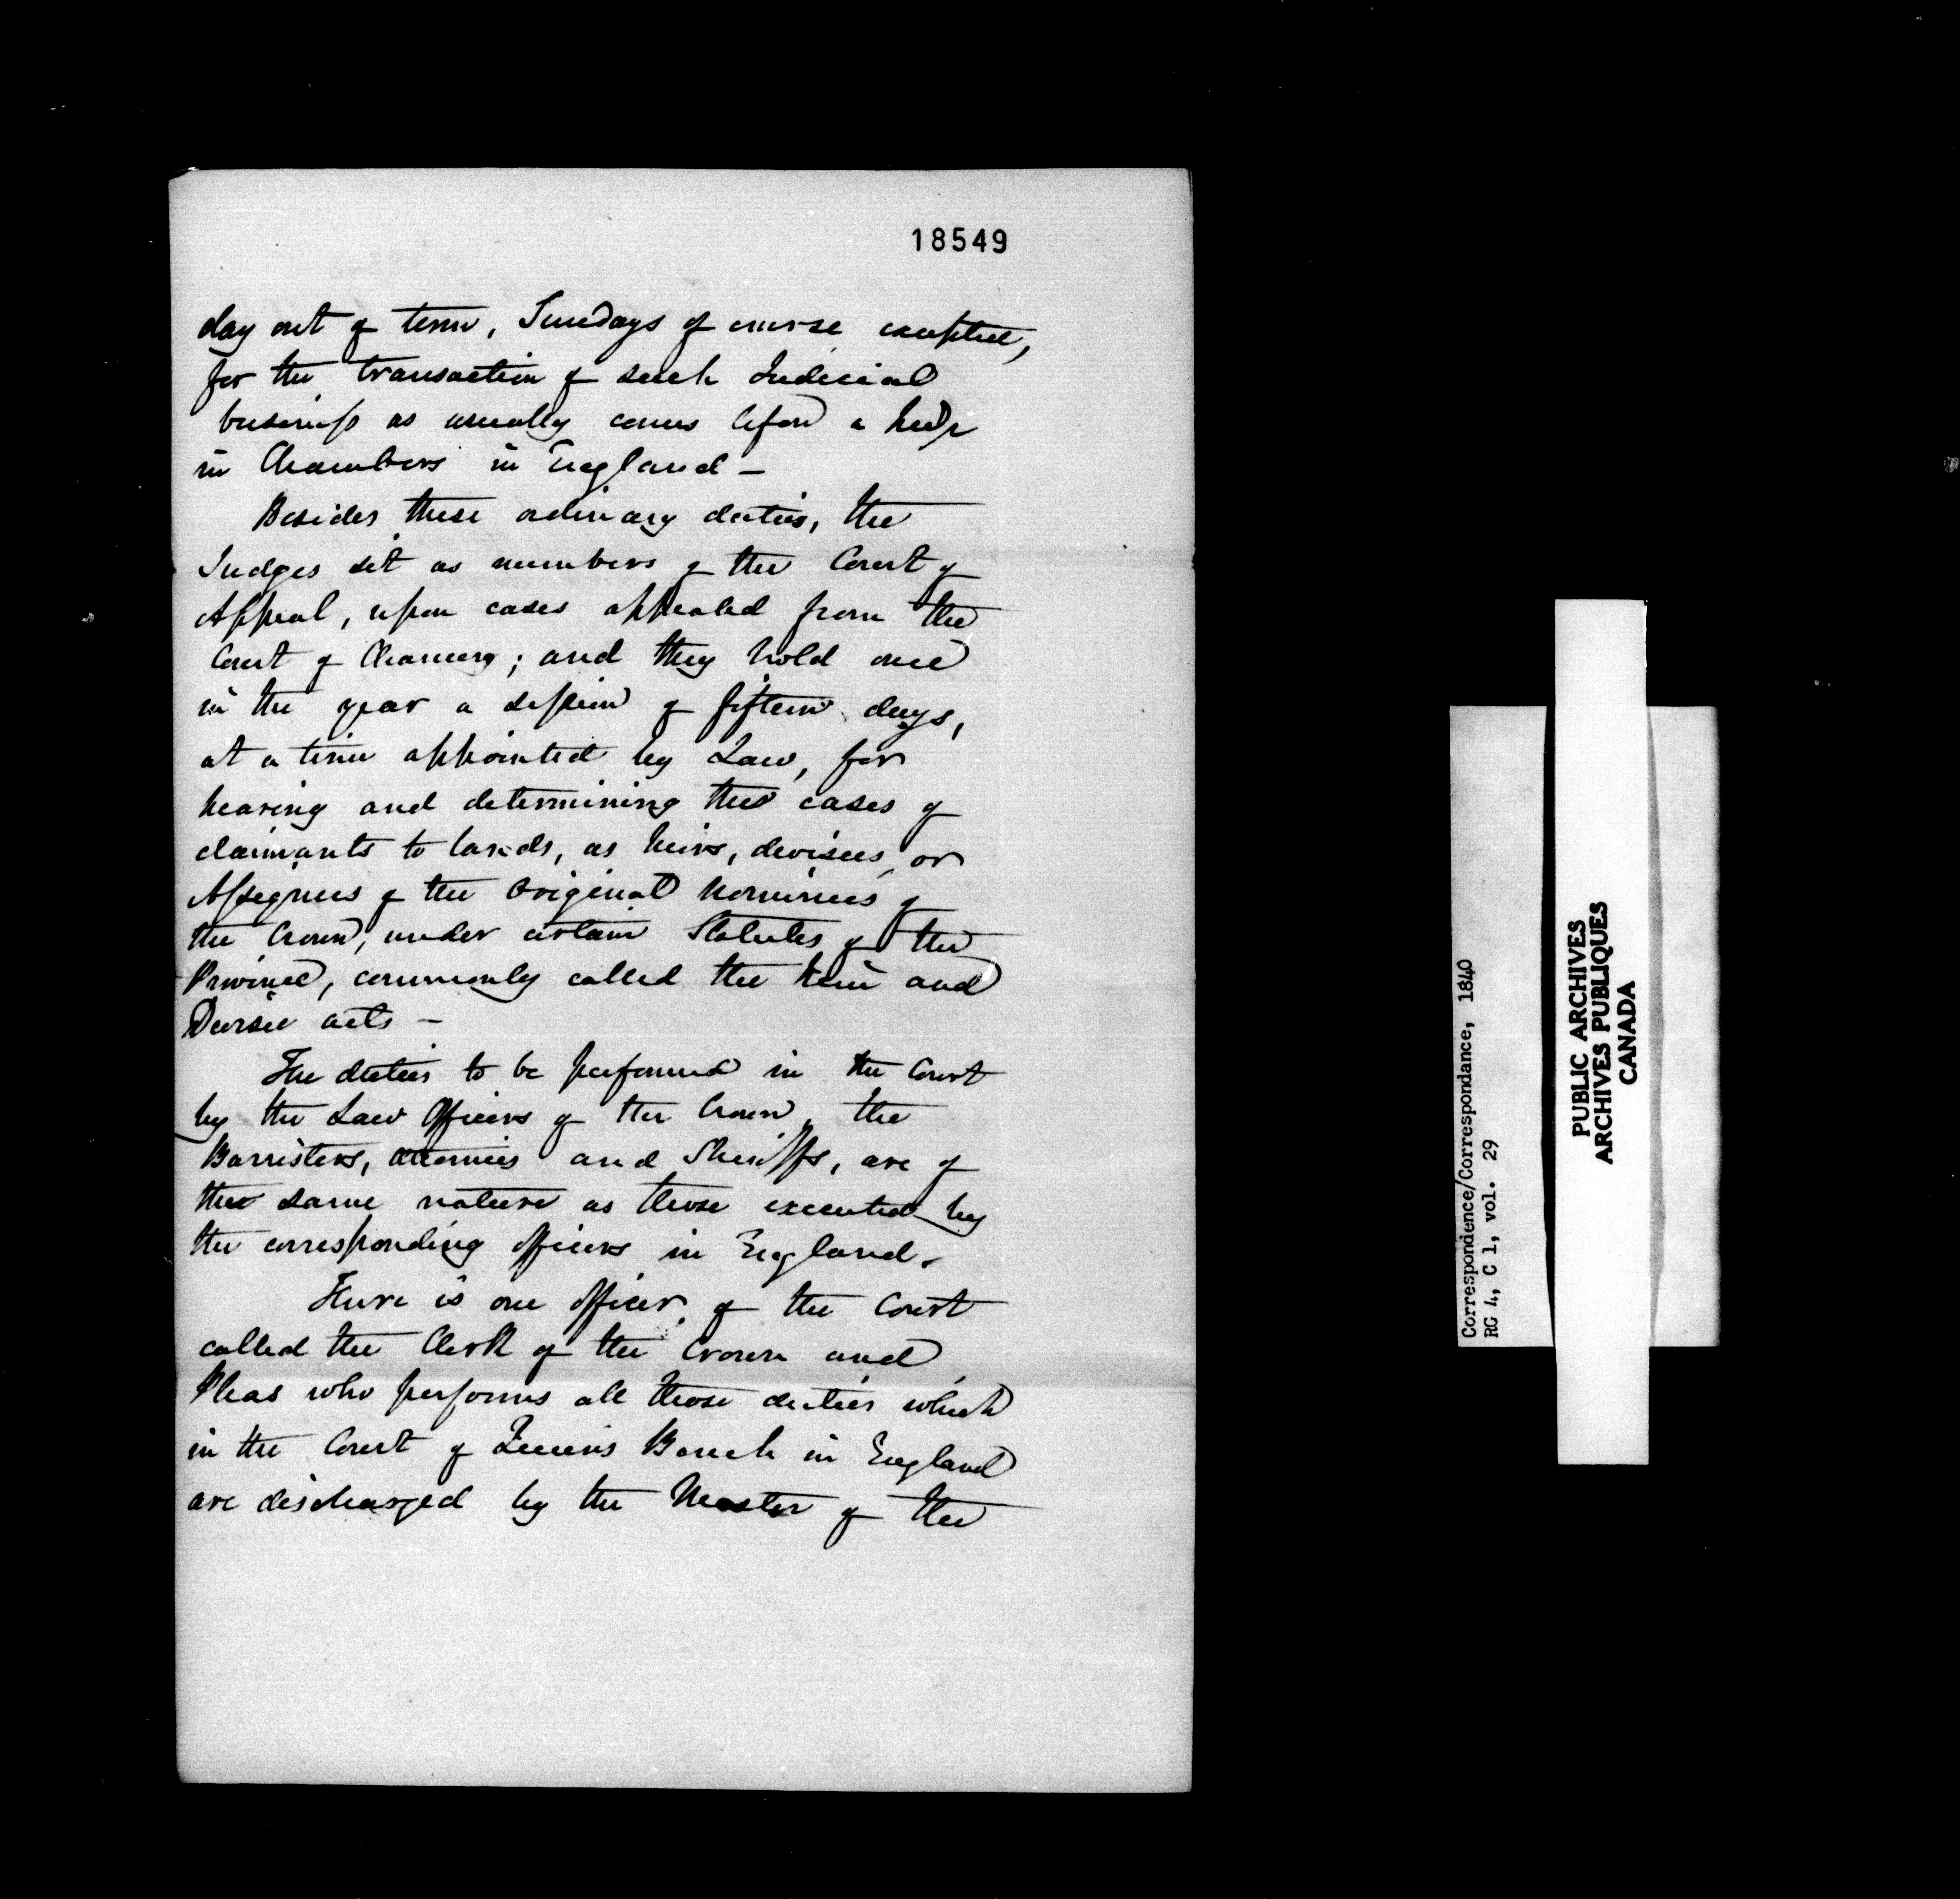 18549
day out of term, Sundays of course excepted,
for the transaction of such Judicial
business as usually comes before a Judge
in Chambers in England —
Besides these ordinary duties, the
Judges sit as members of the Court of
Appeal, upon cases appealed from the
Court of Chancery; and they hold once
in the year a session of fifteen days,
at a time appointed by Law, for
hearing and determining the cases of
claimants to lands, as heirs, devisees, or
Assignees of the Original Nominees of
the Crown, under certain Statutes of the
Province, commonly called the Heir and
Devisee acts —
The duties to be performed in the Court
by the Law Officers of the Crown, the
Barristers, Attornies and Sheriffs, are of
the same nature as those executed by
the corresponding officers in England.
There is one officer of the Court
called the Clerk of the Crown and
Pleas who performs all those duties which
in the Court of Queens Bench in England
are discharged by the Master of the
Correspondence/Correspondance, 1840
RG 4, C 1, vol. 29
PUBLIC ARCHIVES
ARCHIVES PUBLIQUES
CANADA